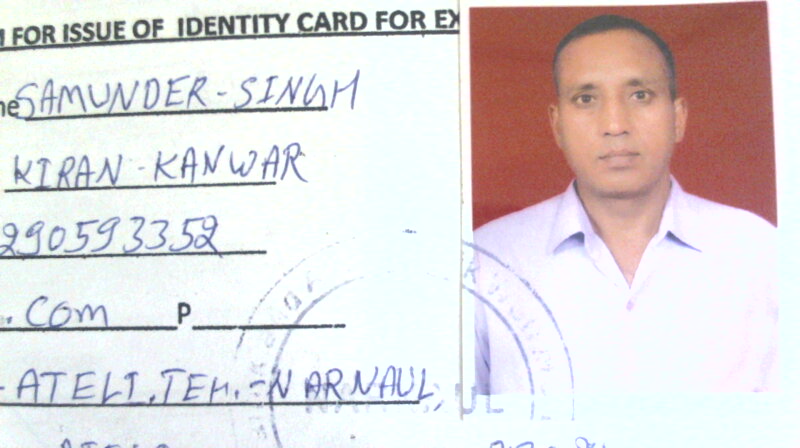 FOR ISSUE OF IDENTITY CARD FOR EX
SAMUNDER-SINGH
KIRAN-KANWAR
290593352
. Com P
-ATELI, TEH.-NARNAUL,